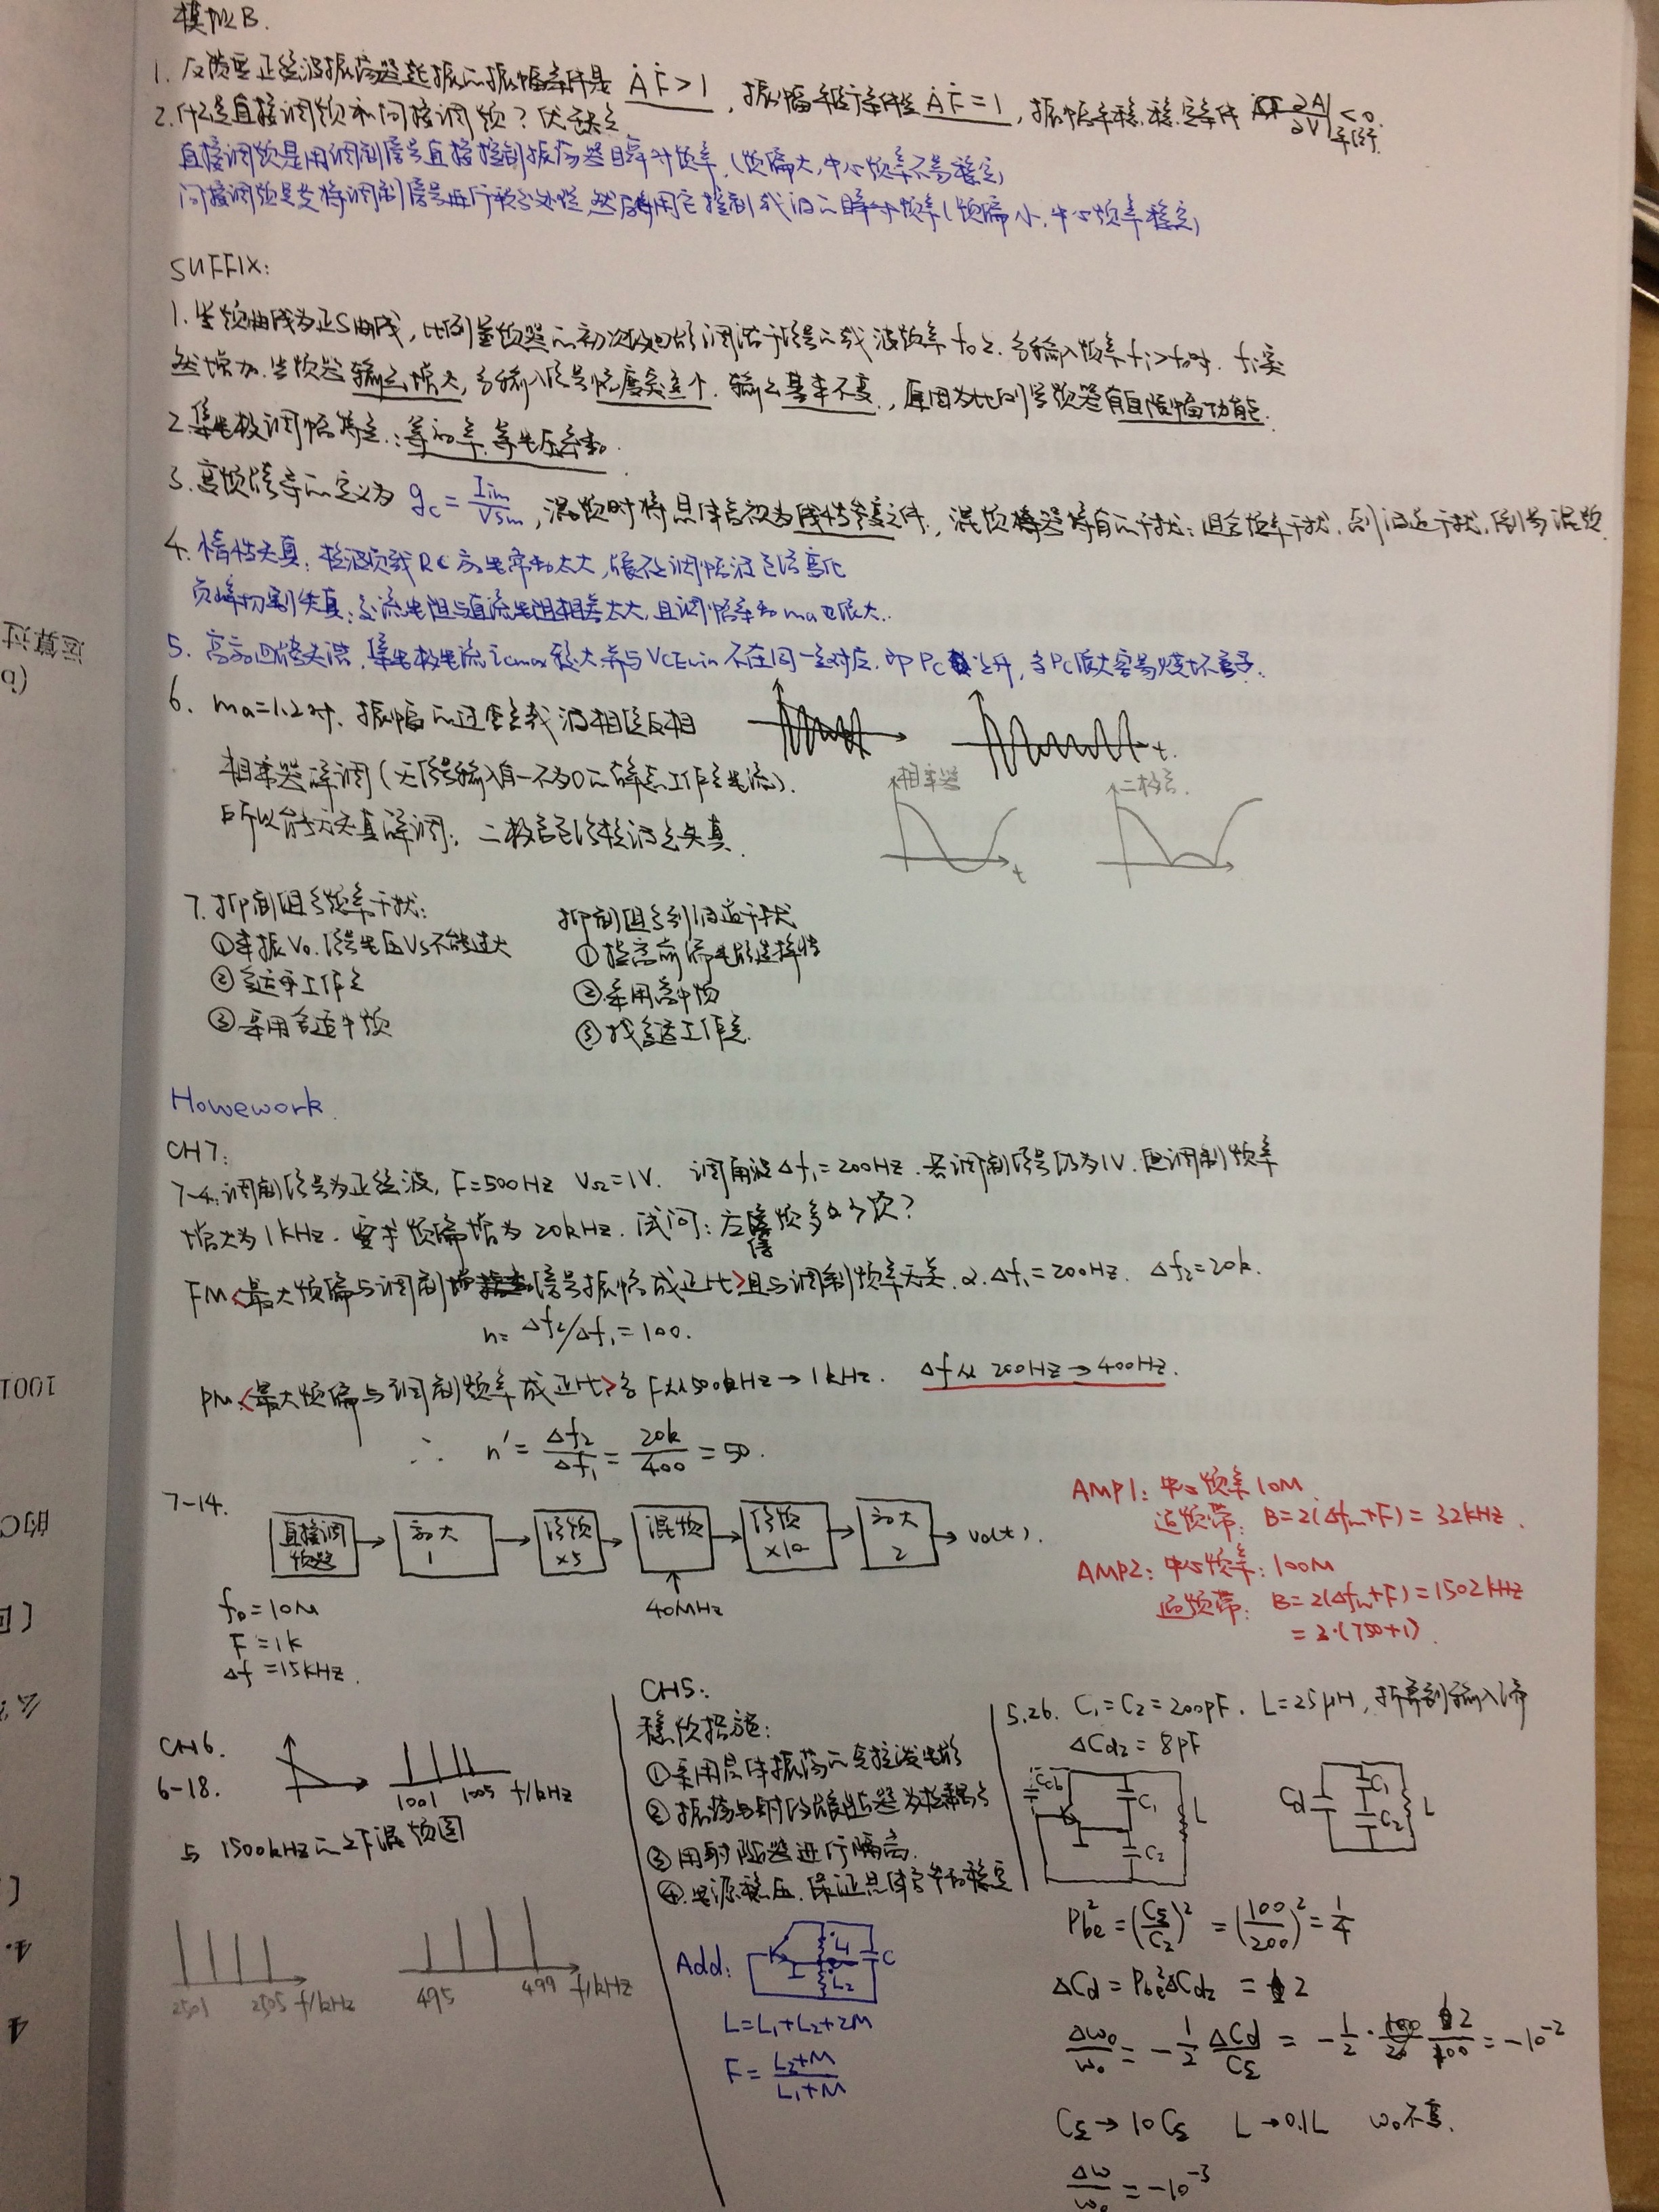 模拟B.
1. 反馈型正弦波振荡器起振的振幅条件是 ȦḞ>1, 振幅平衡条件是 ȦḞ=1, 振幅平稳.稳定条件 ∂A/∂V|平衡 <0.
2. 什么是直接调频和间接调频? 优缺点
直接调频是用调制信号直接控制振荡器瞬时频率.(频偏大,中心频率不易稳定)
间接调频是先将调制信号进行积分处理,然后用它控制载波的瞬时频率(频偏小.中心频率稳定)
SUFFIX:
1. 鉴频曲线为正S曲线, 比例鉴频器的初次级回路调谐于信号的载波频率f0上. 当输入频率fi>f0时. fi突
然增加. 鉴频器输出增大, 当输入信号幅度突变个. 输出基本不变., 原因为比例鉴频器有自限幅功能.
2. 集电极调幅特点: 等效率. 等电压
3. 变频跨导的定义为 gc = Iim/Vsm, 混频时将晶体管视为线性参变元件, 混频器特有的干扰: 组合频率干扰. 副波道干扰, 倒易混频.
4. 惰性失真: 检波负载RC放电常数太大, 跟不上调幅波包络变化
负峰切割失真: 交流电阻与直流电阻相差太大, 且调幅系数ma也很大.
5. 高功回路失谐, 集电极电流icmax很大.并与VCEmin不在同一点对应. 即Pc上升, 当Pc很大容易烧坏管子.
6. ma=1.2时. 振幅的过零点载波相位反相
t.
相乘器解调(无信号输入有一不为0的静态工作点电流). 相乘器 二极管.
所以能无失真解调; 二极管包络检波会失真.
t
7. 抑制组合频率干扰: 抑制组合副波道干扰
①本振V0.信号电压Vs不能过大 ①提高前端电路选择性
②合适工作点 ②采用高中频
③采用合适中频 ③找合适工作点.
Howework.
CH7:
7-4. 调制信号为正弦波, F=500Hz VΩ=1V. 调角波Δf1=200Hz. 若调制信号仍为1V. 但调制频率
增大为1kHz. 要求频偏增为20kHz. 试问: 应倍频多少次?
FM<最大频偏与调制信号振幅成正比>且与调制频率无关. ∴Δf1=200Hz. Δf2=20k.
n= Δf2/Δf1=100.
PM.<最大频偏与调制频率成正比>当F从500kHz→1kHz. Δf从200Hz→400Hz.
∴ n'= Δf2/Δf1 = 20k/400 = 50.
7-14.
直接调频器 → 功大1 → 倍频×5 → 混频 → 倍频×10 → 功大2 → vo(t).
40MHz
f0=10M
F=1k
Δf=15kHz.
AMP1: 中心频率10M.
通频带: B=2(Δfm+F)=32kHz.
AMP2: 中心频率: 100M
通频带: B=2(Δfm+F)=1502kHz
=2·(750+1).
CH6.
6-18. 1001 1005 f/kHz
与1500kHz的上下混频图
2501 2505 f/kHz 495 499 f/kHz
CH5:
稳频措施:
①采用晶体振荡的克拉泼电路
②振荡与射级跟随器为松耦合
③用射随器进行隔离.
④.电源稳压.保证晶体管参数稳定
Add: L1 L2 C
L=L1+L2+2M
F= (L2+M)/(L1+M)
5.26. C1=C2=200pF. L=25μH, 折算到输入端
ΔCd2=8pF
Ccb C1 C2 L Cd C1 C2 L
Pbe² = (CΣ/C2)² = (100/200)² = 1/4
ΔCd = Pbe²ΔCd2 = 2
Δω0/ω0 = -1/2 ΔCd/CΣ = -1/2 · 2/100 = -10⁻²
CΣ→10CΣ L→0.1L ω0不变.
Δω/ω0 = -10⁻³